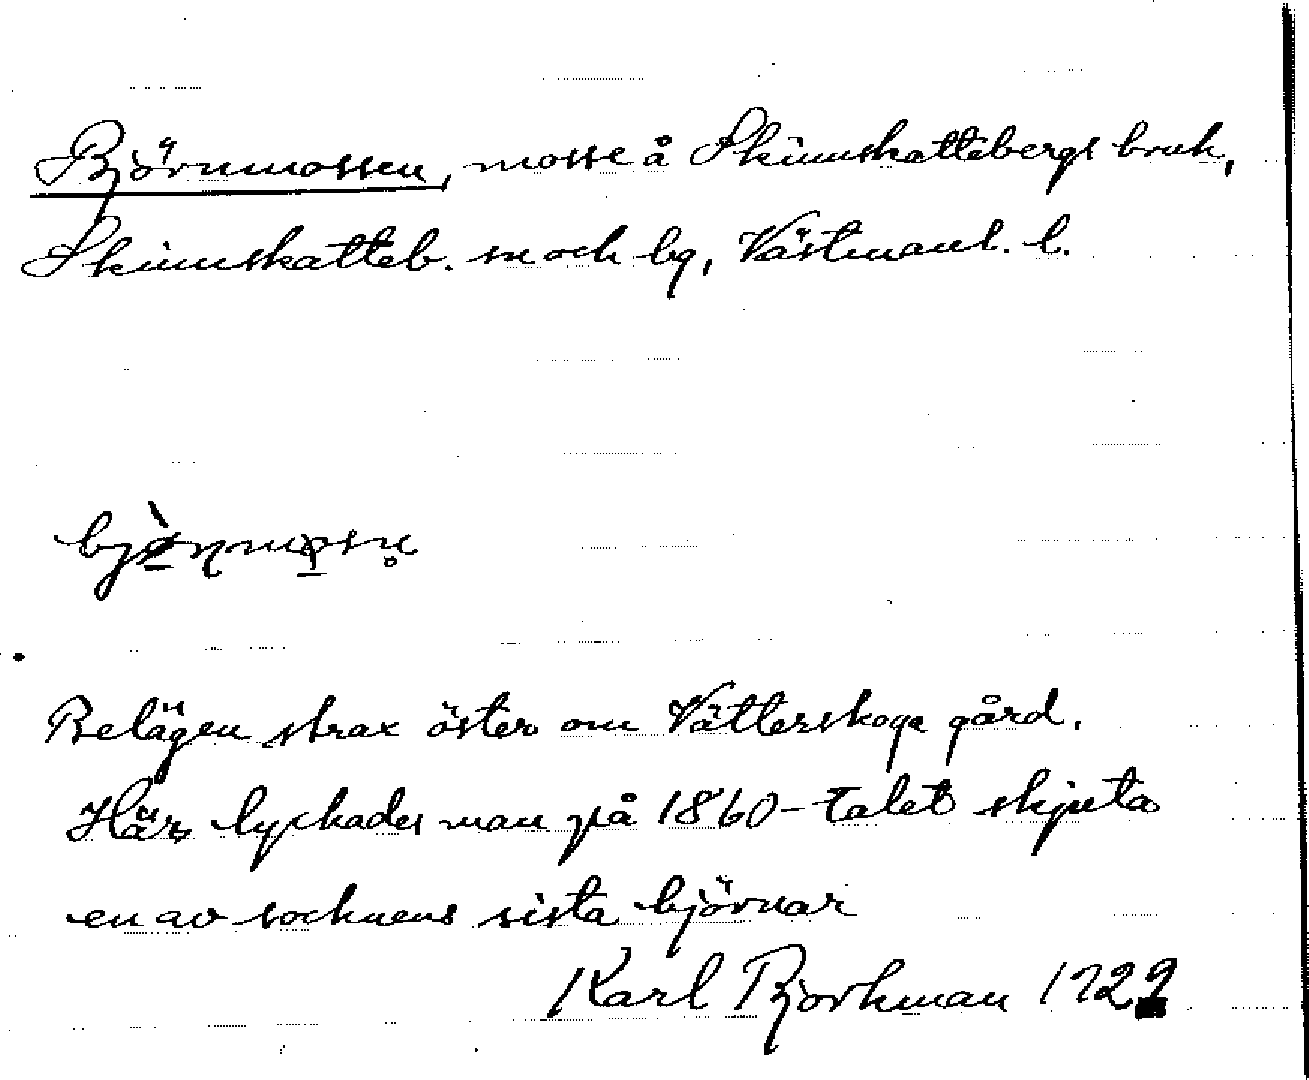 Björnmossen, mosse å Skinnskattebergs bruk,
Skinnskatteb. sn och bg, Västmanl. l.
Belägen strax öster om Vätterskoga gård.
Här lyckades man på 1860-talet skjuta
en av socknens sista björnar
Karl Björkman